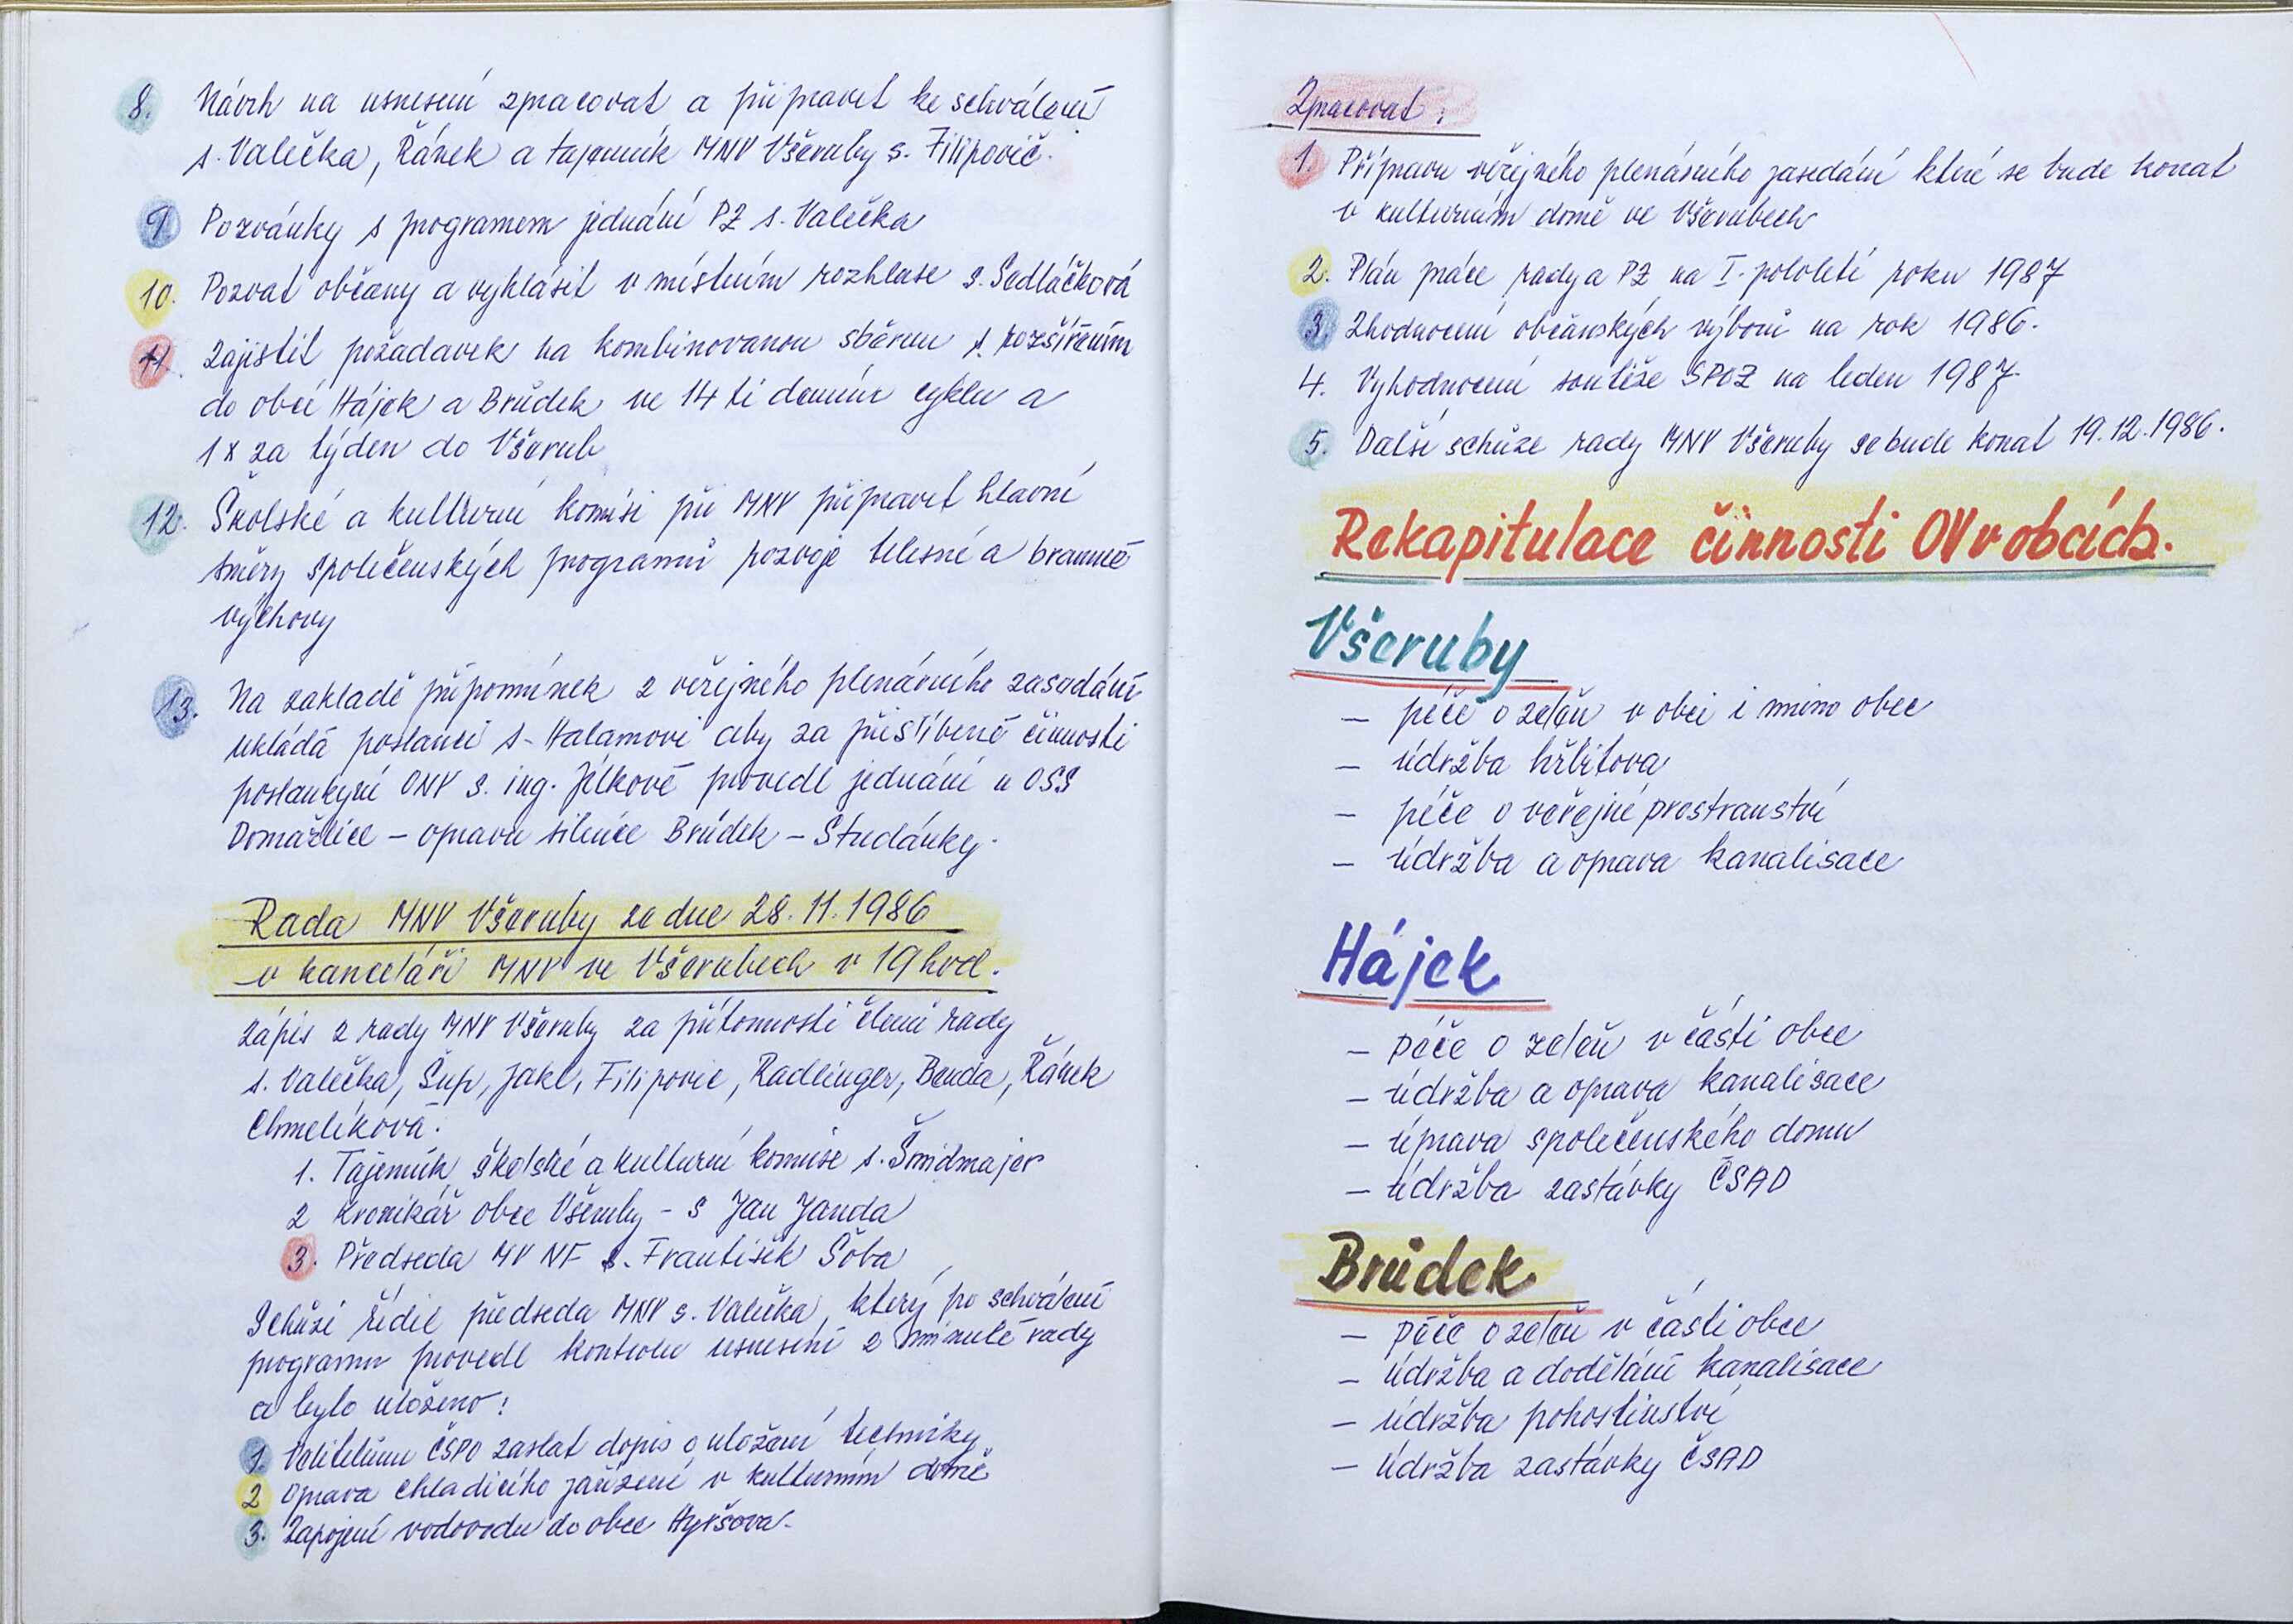 8. Návrh na usnesení zpracovat a připravit ke schválení
s. Valečka, Řánek a tajemník MNV Všeruby s. Filipovič.
9. Pozvánky s programem jednání PZ s. Valečka
10. Pozvat občany a vyhlásit v místním rozhlase s. Sedláčková
11. Zajistit požadavek na kombinovanou sběrnu s rozšířením
do obcí Hájek a Brůdek ve 14 ti denním cyklu a
1x za týden do Všerub
12. Školské a kulturní komisi při MNV připravit hlavní
směry společenských programů rozvoje tělesné a branné
výchovy
13. Na zakladě připomínek z veřejného plenárního zasedání
ukládá poslanci s. Halamovi aby za přislíbené činnosti
poslankyní ONV s. ing. Jílkové provedl jednání u OSS
Domažlice – opravu silnice Brůdek – Studánky.
Rada MNV Všeruby ze dne 28. 11. 1986
v kanceláři MNV ve Všerubech v 19 hod.
Zápis z rady MNV Všeruby za přítomnosti členů rady
s. Valečka, Šup, Jakl, Filipovič, Radlinger, Benda, Řánek
Chmelíková.
1. Tajemník školské a kulturní komise s. Šmidmajer
2 Kronikář obce Všeruby – s Jan Janda
3. Předseda MV NF s. František Šoba
Schůzi řídil předseda MNV s. Valečka, který po schválení
programu provedl kontrolu usnesení z minulé rady
a bylo uloženo:
1. Velitelům ČSPO zaslat dopis o uložení techniky
2 Oprava chladícího zařízení v kulturním domě
3. Zapojení vodovodu do obce Hyršova.
Zpracovat:
1. Přípravu veřejného plenárního zasedání které se bude konat
v kulturním domě ve Všerubech
2. Plán práce rady a PZ na I. pololetí roku 1987
3. Zhodnocení občanských výborů na rok 1986.
4. Vyhodnocení soutěže SPOZ na leden 1987.
5. Další schůze rady MNV Všeruby se bude konat 19. 12. 1986.
Rekapitulace činnosti OV v obcích.
Všeruby
– péče o zeleň v obci i mimo obec
– údržba hřbitova
– péče o veřejné prostranství
– údržba a oprava kanalisace
Hájek
– péče o zeleň v části obce
– údržba a oprava kanalisace
– úprava společenského domu
– údržba zastávky ČSAD
Brůdek
– péče o zeleň v části obce
– údržba a dodělání kanalisace
– údržba pohostinství
– údržba zastávky ČSAD